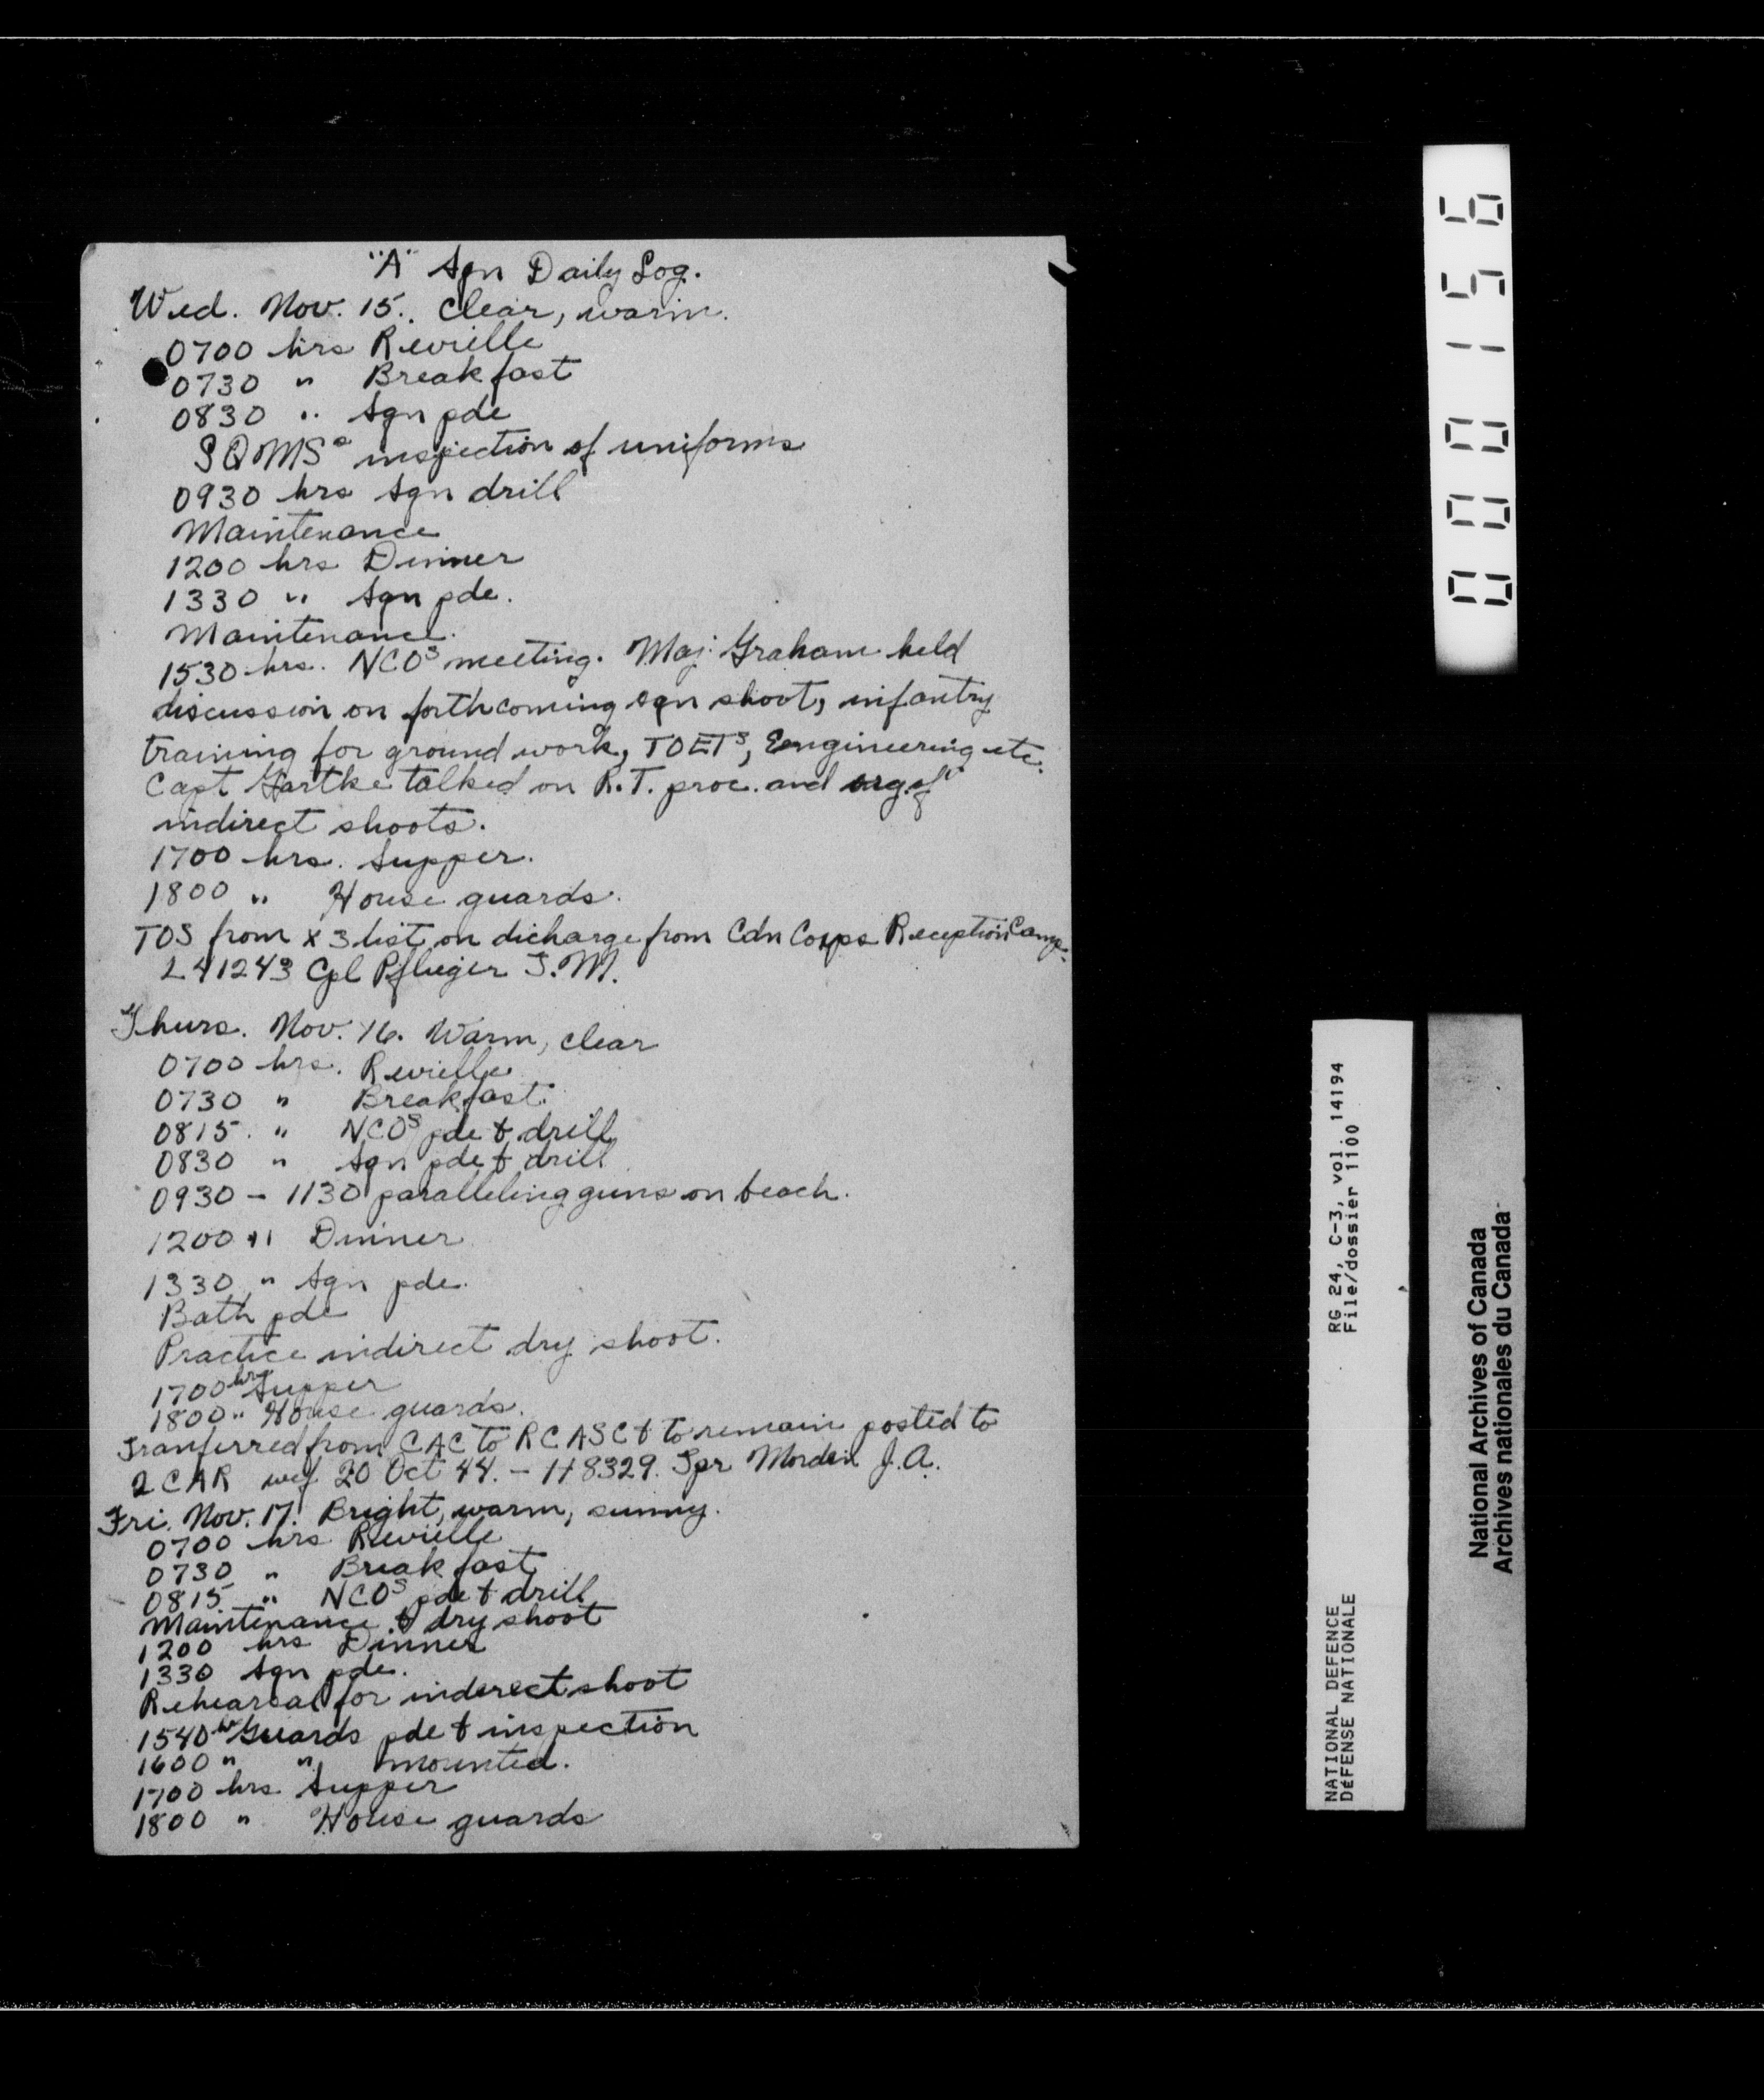 "A" Sqn Daily Log.
Wed. Nov. 15. Clear, warm.
0700 hrs Revielle
0730 " Breakfast
0830 " Sqn pde
SQMSs inspection of uniforms
0930 hrs Sqn drill
Maintenance
1200 hrs Dinner
1330 " Sqn pde.
Maintenance.
1530 hrs. NCOs meeting. Maj. Graham held
discussion on forthcoming sqn shoot, infantry
training for ground work, TOETs, Eengineering etc.
Capt Gartke talked on R.T. proc. and org of
indirect shoots.
1700 hrs. Supper.
1800 " House guards.
TOS from X 3 list on dicharge from Cdn Corps Reception Camp.
L41243 Cpl Pflueger J.M.
Thurs. Nov. 16. Warm, clear
0700 hrs. Revielle
0730 " Breakfast.
0815. " NCOs pde & drill
0830 " Sqn pde & drill
0930 - 1130 paralleling guns on beach.
1200 " Dinner
1330 " Sqn pde.
Bath pde
Practice indirect dry shoot.
1700 hrs Supper
1800 " House guards.
Tranferred from CAC to RCASC & to remain posted to
2 CAR wef 20 Oct 44. - H8329. Tpr J.A.
Fri. Nov. 17. Bright, warm, sunny.
0700 hrs Revielle
0730 " Breakfast
0815 " NCOs pde & drill
Maintenance & dry shoot
1200 hrs Dinner
1330 Sqn pde.
Rehearsal for inderect shoot
1540 hr Guards pde & inspection
1600 " " mounted.
1700 hrs Supper
1800 " House guards
0000156
NATIONAL DEFENCE RG 24, C-3, vol. 14194
DéFENSE NATIONALE File/dossier 1100
National Archives of Canada
Archives nationales du Canada